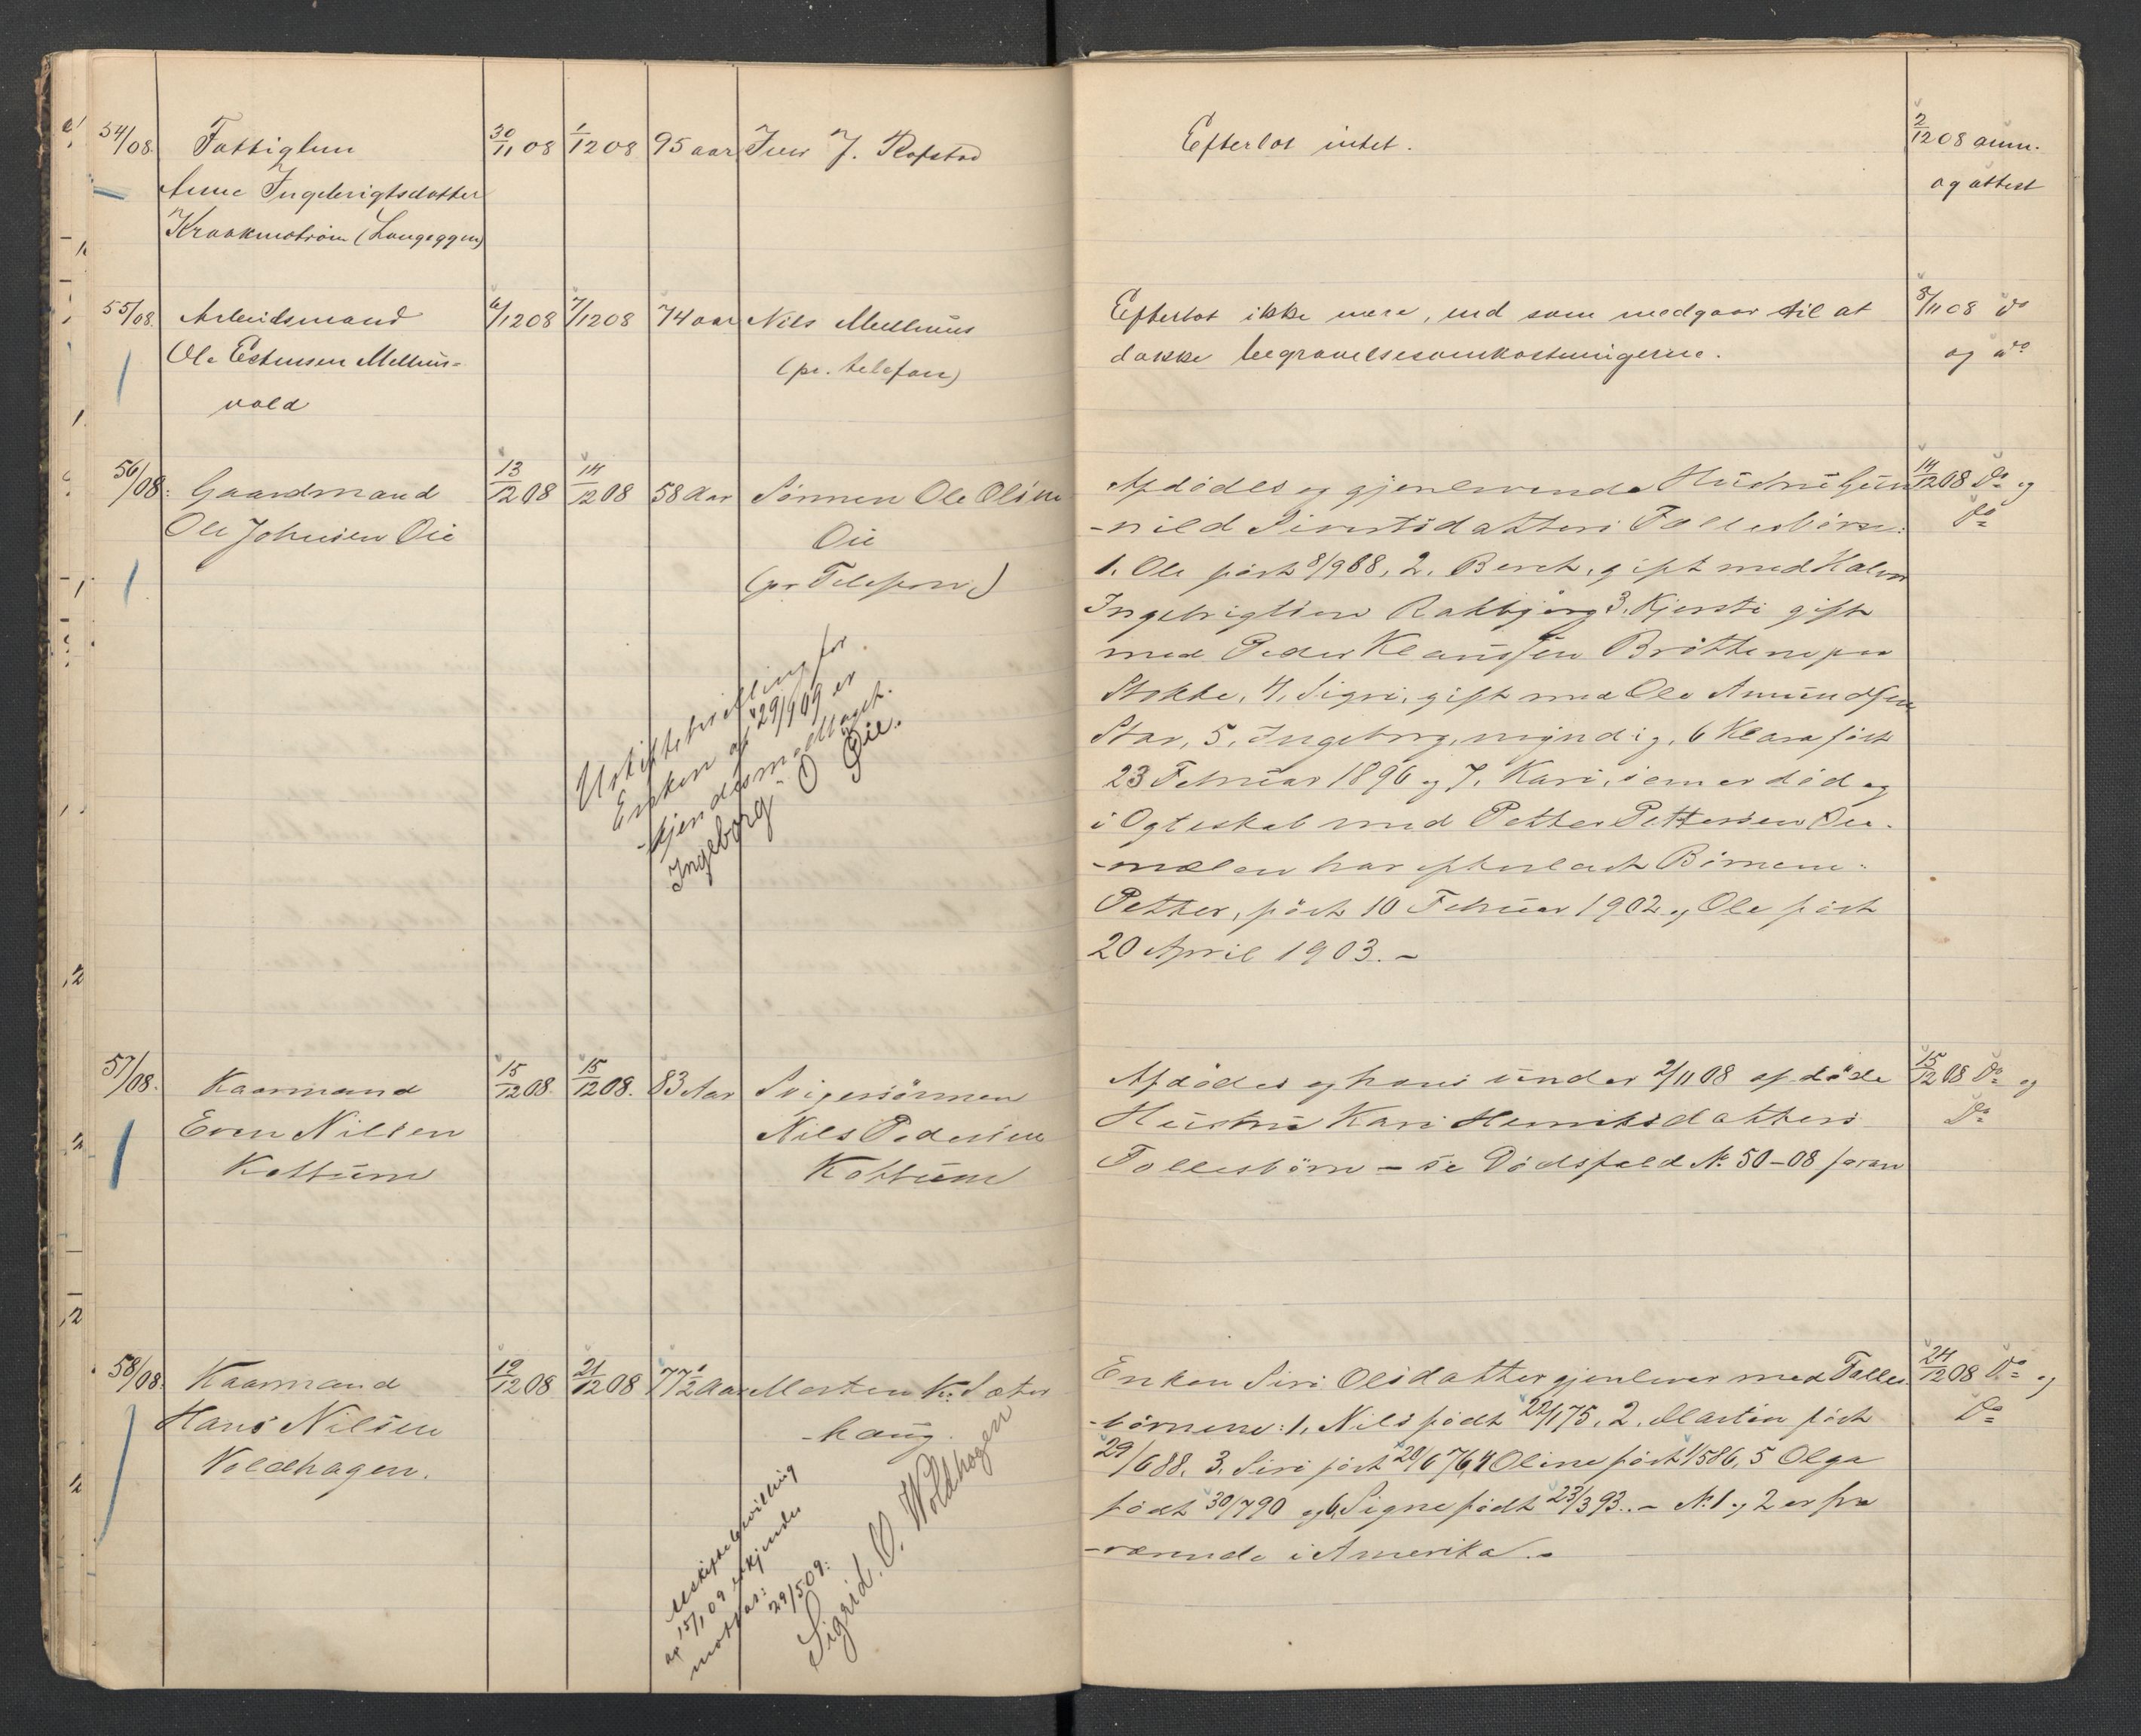 54/08. Fattiglem 30/11 08 1/12 08 95 aar Iver J. Rofstad Efterlot intet. 2/12 08 anm.
Anne Ingebrigtsdatter og attest
Kraakmoström (Langeggen)
55/08. Arbeidsmand 6/12 08 7/12 08 74 aar Nils Melhuus Efterlot ikke mere, end som medgaar til at 8/11 08 do
Ole Estensen Melhus= (pr. telefon) dække begravelsesomkostningerne. og do
vold
56/08. Gaardmand 13/12 08 14/12 08 58 Aar Sönnen Ole Olsen Afdödes og gjenlevende Hustru Gun 14/12 08 Do og
Ole Johnsen Öie Öie -nild Sivertsdatters Fællesbörn: Do
(pr Telefon) 1. Ole födt 8/9 88, 2. Beret, gift med Halvor
Ingebrigtsen Rakbjörg 3. Kjersti gift
med Peder Klaussen Bröttem paa
Stokke, 4. Sigri, gift med Ole Amundsen
Uskiftebevilling for
Enken af 29/1 09 er
-kjendes mottaget.
Ingeborg O Öie.
Stav, 5. Ingeborg, myndig, 6 Klara födt
23 Februar 1896 og 7. Kari, som er död og
i Ægteskab med Petter Pettersen Öie-
-mælen har efterladt Börnene:
Petter, födt 10 Februar 1902 og Ole födt
20 April 1903. -
57/08. Kaarmand 15/12 08. 15/12 08. 83 Aar Svigersönnen Afdödes og hans under 2/11 08 afdöde 15/12 08 Do og
Even Nilsen Nils Pedersen Hustru Kari Henriksdatters Do
Kottum Kottum Fællesbörn - se Dödsfald No 50-08 foran
58/08. Kaarmand 19/12 08 21/12 08 77 1/2 Aar Morten K. Sæter Enken Siri Olsdatter gjenlever med Fælles 24/12 08 Do og
Hans Nilsen -haug. -börnene: 1. Nils födt 22/1 75, 2. Martin födt Do
Voldhagen. 29/6 88, 3. Siri födt 20/6 76, 4 Oline födt 1/5 86, 5 Olga
födt 30/7 90 og 6 Signe födt 23/3 93. - No 1 og 2 er fra
-værende i Amerika. -
Uskiftebevilling
af 15/1 09 erkjendes
mottat: 29/5 09:
Sigrid. O. Woldhagen